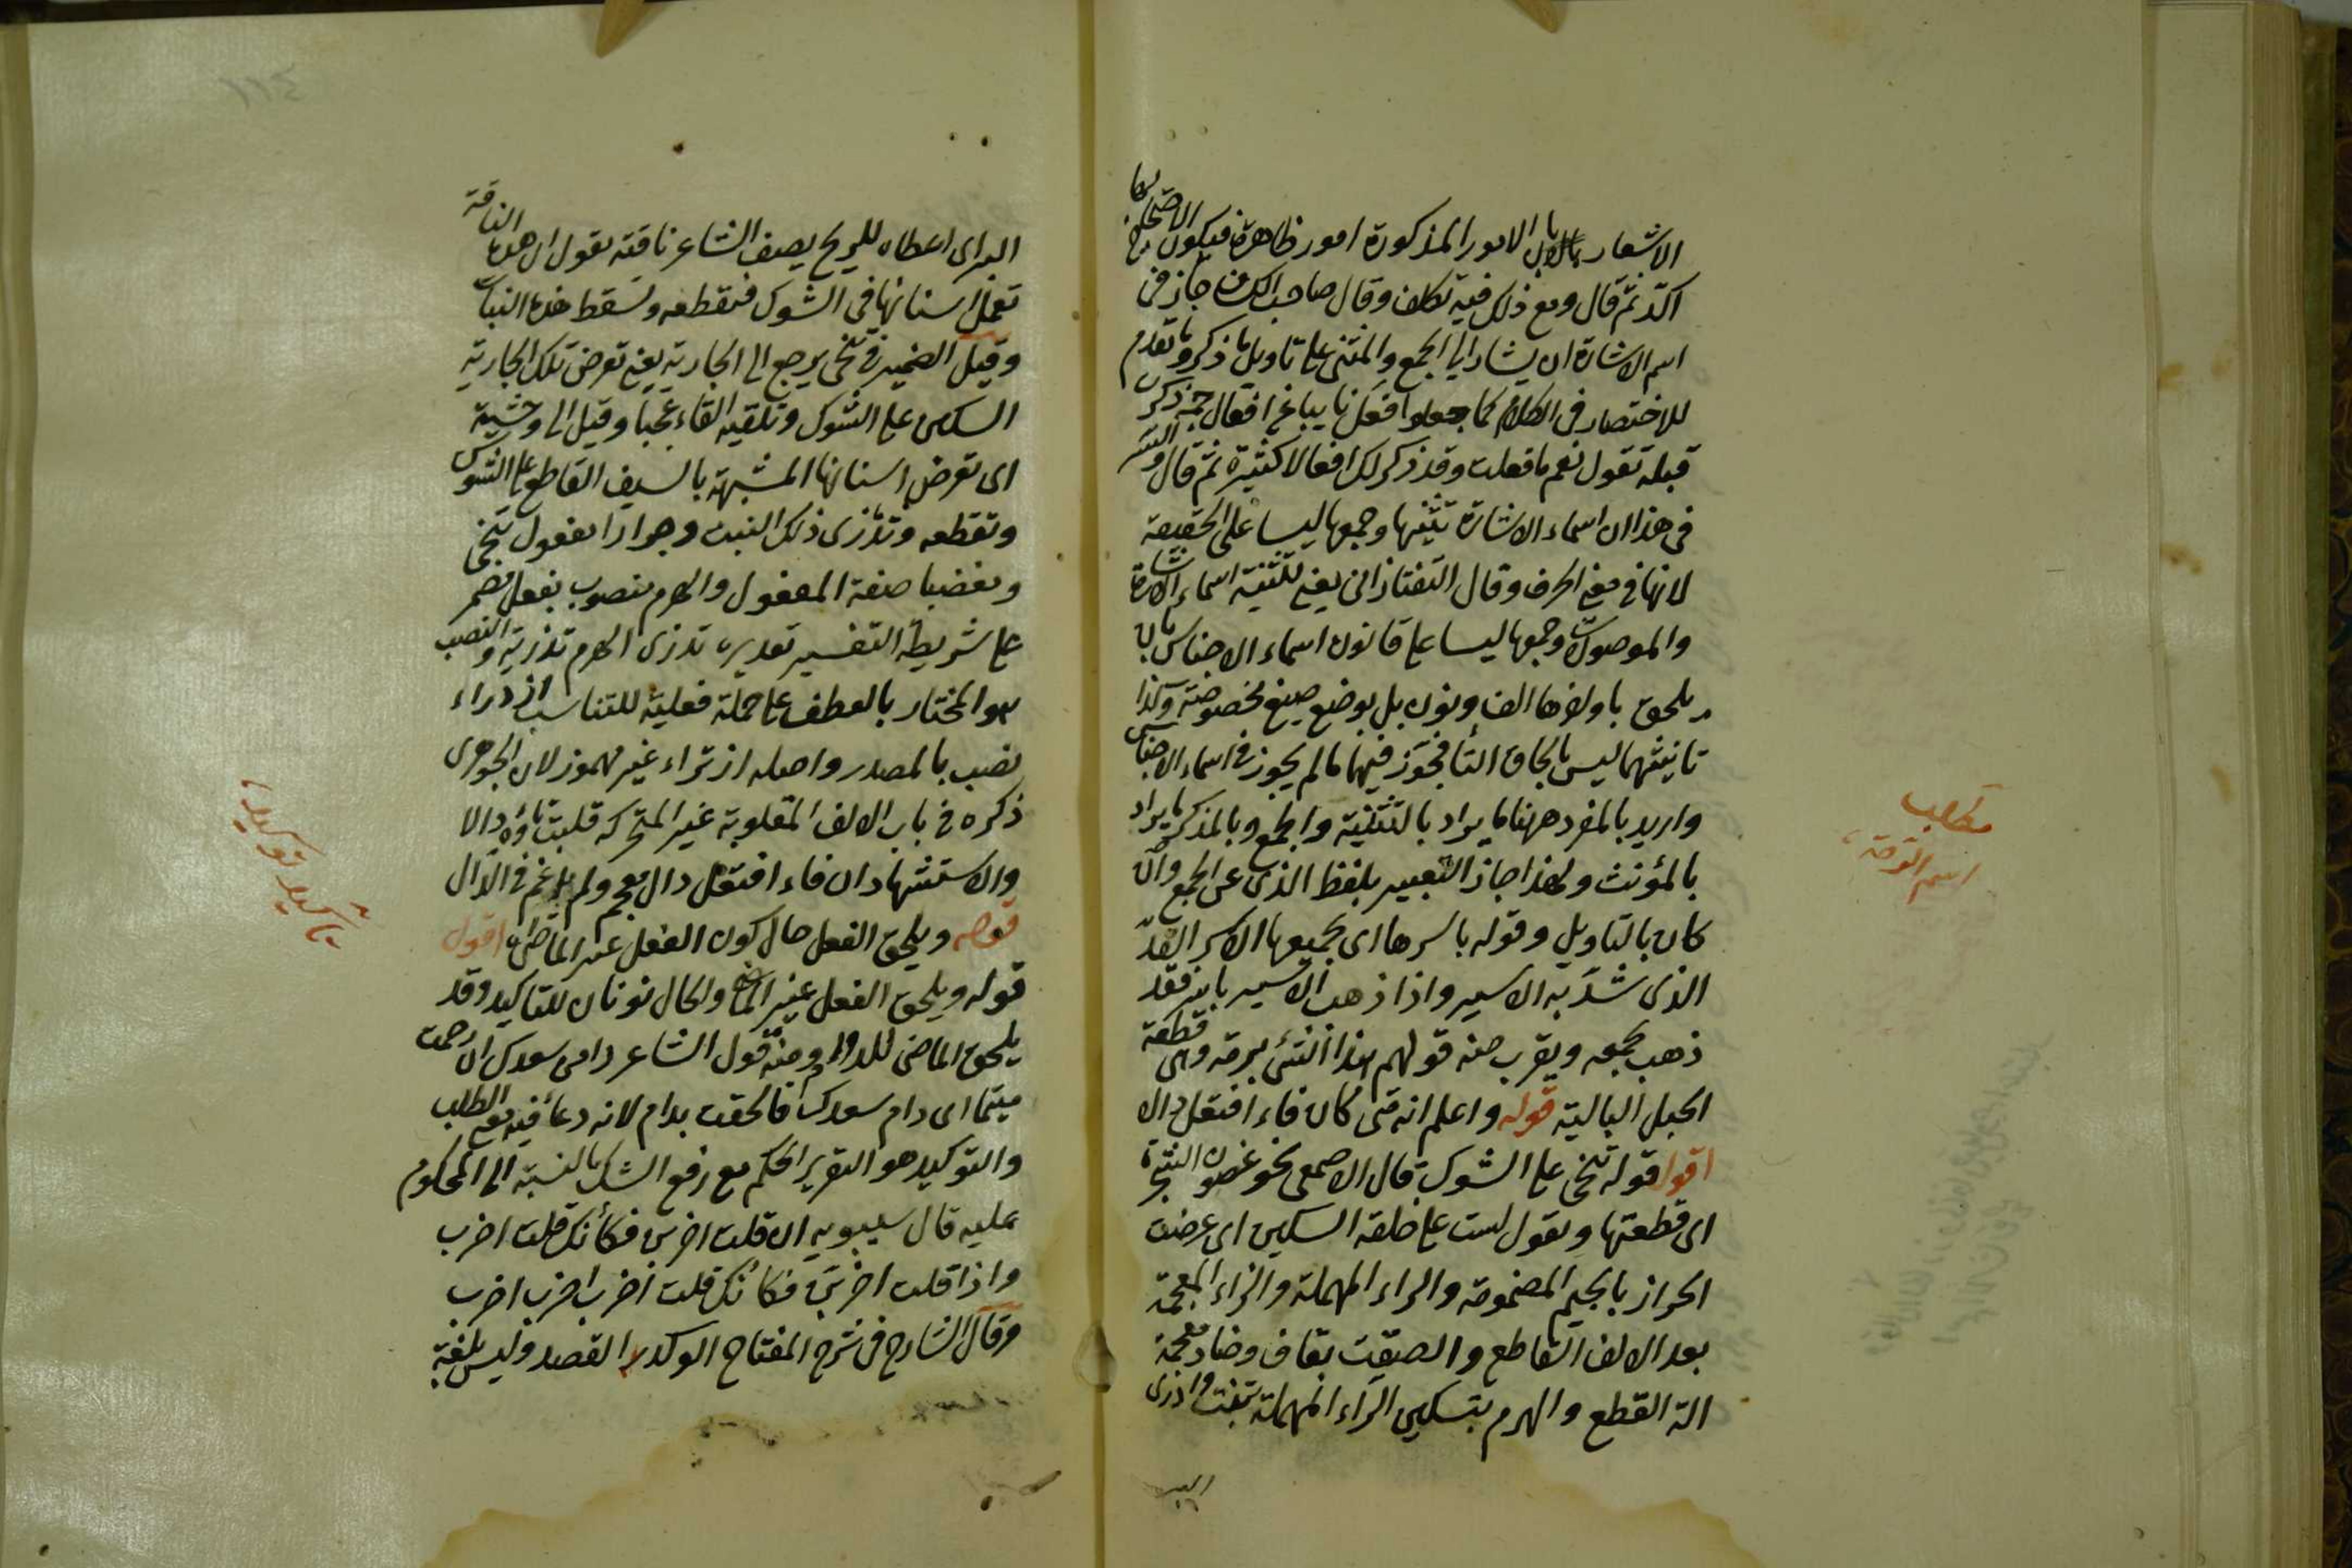 الاشعار بان الامور المذكورة امور ظاهرة فيكون الاحتجاج بها
اكدّ ثمّ قال ومع ذلك فيه تكلف وقال صاحب الكشاف جاز في
اسم الاشارة ان يشار الى الجمع والمثنى على تاويل ما ذكر وما تقدم
للاختصار في الكلام كما جعلوا فعل نايبا عن افعال جمة ذكرت
قبله تقول نعم ما فعلت وقد ذكر لك افعالا كثيرة ثم قال والسر
في هذا ان اسماء الاشارة تثنيتها وجمعها ليسا على الحقيقة
لانها في معنى الحرف وقال التفتازاني يعني تثنية اسماء الاشارة
والموصولات وجمعها ليسا على قانون اسماء الاجناس بان
يلحق باواخرها الف ونون بل بوضع صيغ مخصوصة وكذا
تانيثهما ليس بالحاق التا فجوّز فيهما ما لم يجوز في اسماء الاجناس
واريد بالمفرد ههنا ما يراد بالتثنية والجمع وبالمذكر ما يراد
بالمؤنث ولهذا جاز التعبير بلفظ الذي عن الجمع وان
كان بالتاويل وقوله باسرها اى بجميعها الاسر القدّ
الذى شدّ به الاسير واذا ذهب الاسير باسره فقد
ذهب بجميعه ويقرب منه قولهم هذا الشئ برمته وهى قطعة
الحبل البالية قوله واعلم انه متى كان فاء افتعل دالا
اقول قوله تنحى على الشوك قال الاصمعى نحو غصون الشجرة
اى قطعتها ويقول لست على حلقه السكين اى عرضت
الجراز بالجيم المضمومة والراء المهملة والزاء المعجمة
بعد الالف القاطع والمقضب بقاف وضاد معجمة
الة القطع والهرم بتسكين الراء المهملة نبت واذرى
البر
مطلب
اسم الرمة
البر اى اعطاه للريح يصف الشاعر ناقته يقول ان هذه الناقة
تعمل اسنانها في الشوك فتقطعه وتسقط هذا النبات
وقيل الضمير في تنحى يرجع الى الجارية يعني تعرض تلك الجارية
السكين على الشوك وتلقيه القاء عجبا وقيل الى وحشية
اى تعرض اسنانها المشبهة بالسيف القاطع على الشوك
وتقطعه وتذرى ذلك النبت وجرازا مفعول تنحى
ومقضبا صفة المفعول والهرم منصوب بفعل مضمر
على شريطة التفسير تقديره تذرى الهرم تذريه والنصب
هو المختار بالعطف على جملة فعلية للتناسب ازدراء
نصب بالمصدر واصله ازتراء غير مهموز لان الجوهرى
ذكره في باب الالف المقلوبة غير المتحركة قلبت تاؤه دالا
والاستشهاد ان فاء افتعل دال معجم ولم يدغم في الدال
قوله ويلحق الفعل حال كون الفعل غير الماضى اقول
قوله ويلحق الفعل غير الماضى والحال نونان للتاكيد وقد
يلحق الماضى للدوام ومنه قول الشاعر دامن سعدك ان رحمت
متيما اى دام سعدك فالحقت بدام لانه دعا فيه معنى الطلب
والتوكيد هو التقرير الحكم مع رفع الشك بالنسبة الى المحكوم
عليه قال سيبويه ان قلت اضربن فكأنك قلت اضرب
واذا قلت اضربنّ فكانك قلت اضرب اضرب اضرب
وقال الشارح في شرح المفتاح الوكد القصد وليس بلغة
تاكيد توكيد